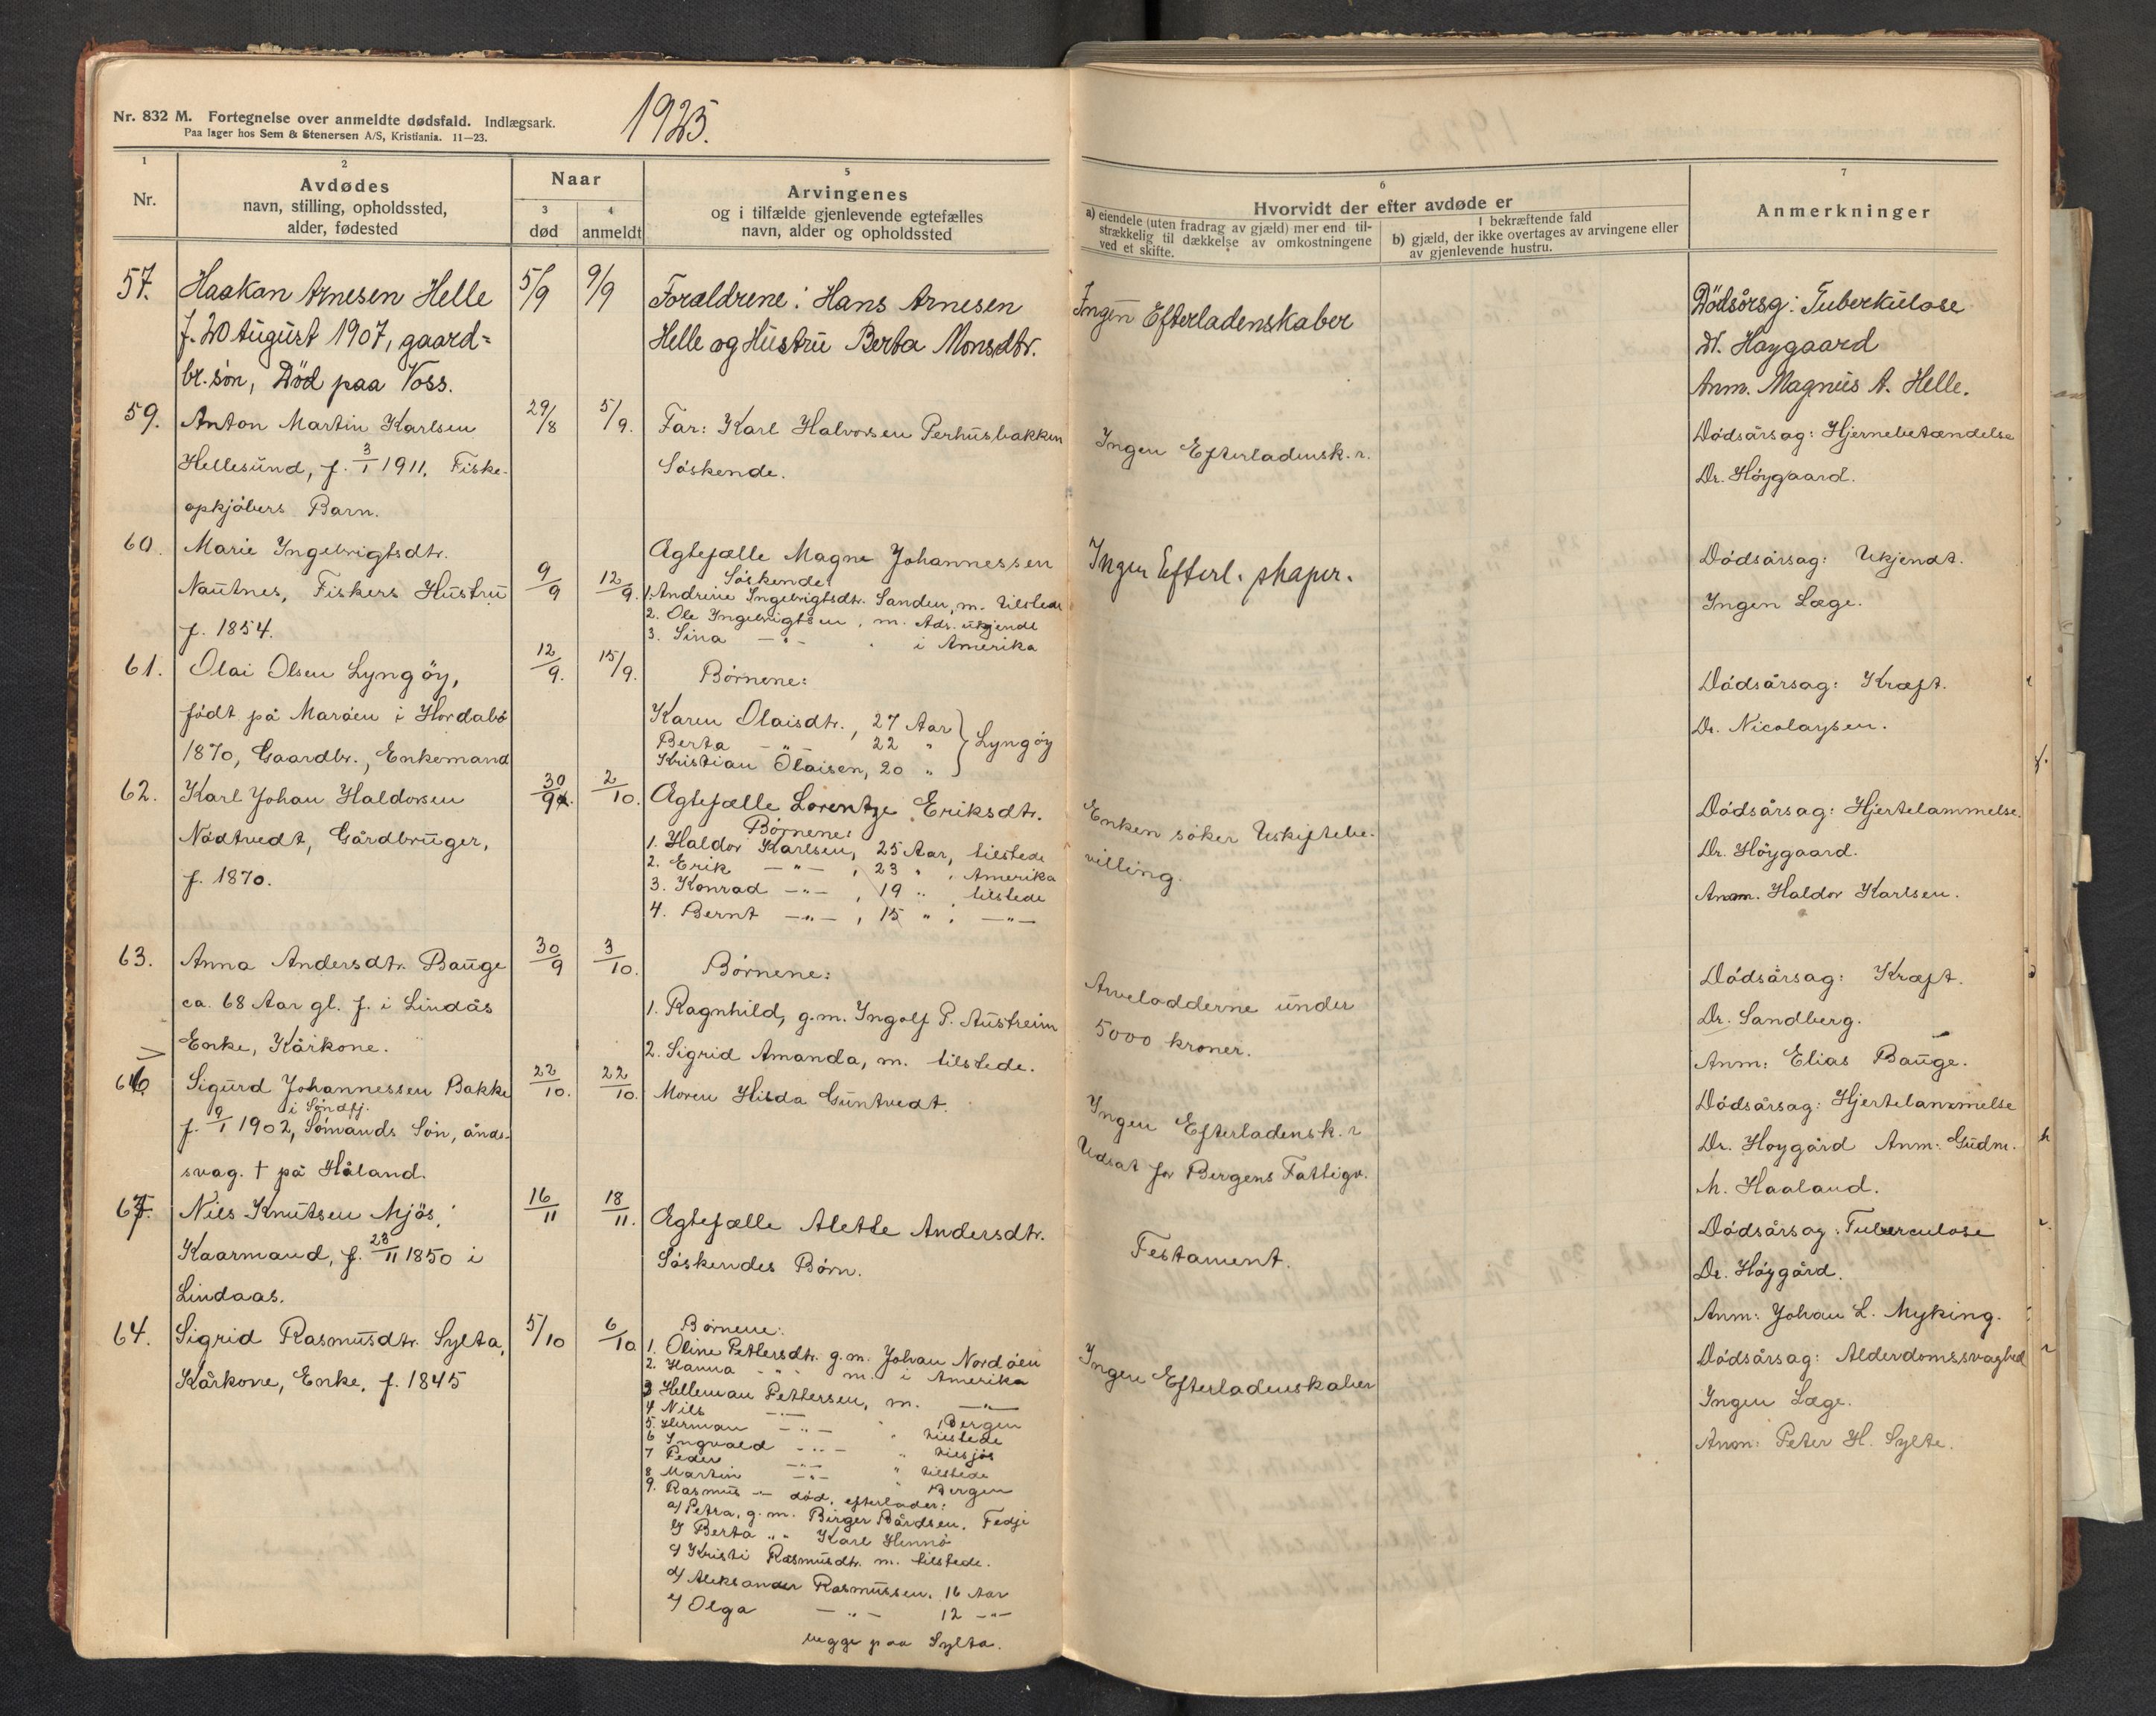 Nr. 832 M. Fortegnelse over anmeldte dødsfald. Indlægsark.
Paa lager hos Sem & Stenersen A/S, Kristiania. 11—23.
1925.
1
Nr.
2
Avdødes
navn, stilling, opholdssted,
alder, fødested
Naar
3
død
4
anmeldt
5
Arvingenes
og i tilfælde gjenlevende egtefælles
navn, alder og opholdssted
6
Hvorvidt der efter avdøde er
a) eiendele (uten fradrag av gjæld) mer end til-
strækkelig til dækkelse av omkostningene
ved et skifte.
I bekræftende fald
b) gjæld, der ikke overtages av arvingene eller
av gjenlevende hustru.
7
Anmerkninger
57.
Haakan Arnesen Helle
f. 20 August 1907, gaard-
br. søn, Død paa Voss.
5/9
9/9
Forældrene: Hans Arnesen
Helle og Hustru Berta Monsdtr.
Ingen Efterladenskaber
Dödsårsg: Tuberkulose
Dr. Høygaard
Anm. Magnus A. Helle.
59.
Anton Martin Karlsen
Hellesund, f. 3/1 1911, Fiske-
opkjøbers Barn.
29/8
5/9.
Far: Karl Halvorsen Perhusbakken
Söskende.
Ingen Efterladensk. r.
Dödsårsag: Hjernebetændelse
Dr. Höygaard.
60.
Marie Ingebrigtsdtr.
Nautnes, Fiskers Hustru
f. 1854.
9/9
12/9.
Ægtefælle Magne Johannessen
Söskende:
1. Andrine Ingebrigtsdtr. Sanden, m. tilstede
2. Ole Ingebrigtsen, m. Ads. ukjendt
3. Sina —"— " i Amerika
Ingen Efterl. skaper.
Dödsårsag: Ukjendt.
Ingen Læge.
61.
Olai Olsen Lyngöy,
födt på Maröen i Hordabö
1870, Gaardbr., Enkemand
12/9.
15/9.
Børnene:
Karen Olaisdtr., 27 Aar
Berta —"— 22 "
Kristian Olaisen, 20 "
Lyngöy
Dödsårsag: Kræft.
Dr. Nicolaysen.
62.
Karl Johan Haldorsen
Nødtvedt, Gårdbruger,
f. 1870.
30/9.
2/10.
Ægtefælle Lorentze Eriksdtr.
Børnene:
1. Haldor Karlsen, 25 Aar, tilstede
2. Erik —"—, 23 ", Amerika
3. Konrad —"—, 19 ", tilstede
4. Bernt —"—, 15 ", —"—
Enken söker Uskiftebe-
villing.
Dödsårsag: Hjertelammelse.
Dr. Höygaard.
Anm. Haldor Karlsen.
63.
Anna Andersdtr. Bauge
ca. 68 Aar gl. f. i Lindås
Enke, Kårkone.
30/9
3/10.
Børnene:
1. Ragnhild, g.m. Ingolf P. Austreim
2. Sigrid Amanda, m. tilstede.
Arveladderne under
5000 kroner.
Dödsårsag: Kræft.
Dr. Sandberg.
Anm: Elias Bauge.
66.
Sigurd Johannessen Bakke
i Søndfj.
f. 9/1 1902, Sömands Sön, ånds-
svag. † på Håland.
22/10.
22/10.
Moren Hilda Guntvedt.
Ingen Efterladensk. r
Udsat for Bergens Fattigv.
Dödsårsag: Hjertelammelse
Dr. Hoygård Anm: Gudm.
M. Haaland.
67.
Nils Knutsen Mjös,
Kaarmand, f. 23/11 1850 i
Lindaas.
16/11
18/11.
Ægtefælle Alette Andersdtr.
Söskendes Børn.
Testament.
Dödsårsag: Tuberculose
Dr. Höygård.
Anm: Johan L. Myking.
64.
Sigrid Rasmusdtr. Sylta,
Kårkone, Enke, f. 1845
5/10
6/10
Børnene:
1. Oline Pettersdtr. g.m. Johan Nordöen
2. Hanna —"— m. i Amerika
3 Helleman Pettersen, m. —"—
4 Nils —"— " , Bergen
5. Herman —"— " tilstede
6 Ingvald —"— " tilsjös
7 Peder —"— " tilstede
8 Martin —"— " , Bergen
9. Rasmus —"— död, efterlader:
a) Petra, g.m. Birger Bårdsen. Fedje
b) Berta " " Karl Hennö
c) Kristi Rasmusdtr. m. tilstede.
d) Aleksander Rasmussen. 16 Aar
e) Olga —"— 12 —"—
begge paa Sylta.
Ingen Efterladenskaber
Dödsårsag: Alderdomssvaghed
Ingen Læge.
Anm: Peter H. Sylte.